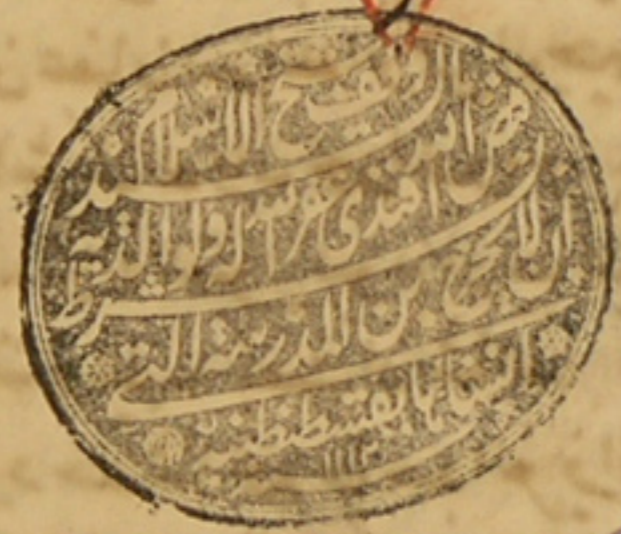 وقف شيخ الاسلام السيد
فيض الله افندى غفر الله له ولوالديه
بشرط ان لا يخرج من المدرسة التى
انشاها بقسطنطنية
١١١٢